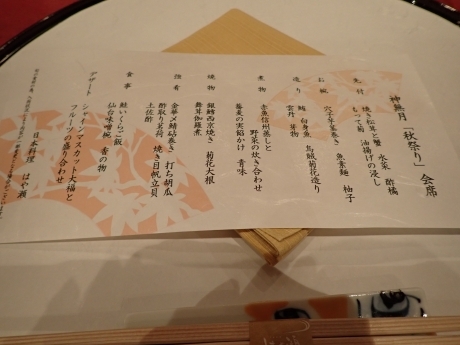 神無月「秋祭り」会席
先付
焼き松茸と蟹 水菜 酢橘
もって菊 油揚げの浸し
お椀
穴子年輪巻き 魚素麺 柚子
造り
鮪 白身魚 烏賊菊花造り
雲丹 芽物
煮物
赤魚信州蒸しと
野菜の炊き合わせ
蕎麦の実餡かけ 青味
焼物
銀鱈西京焼き 菊花大根
舞茸伽羅煮
担肴
金華〆鯖砧巻き 打ち胡瓜
酢取り茗荷 焼き目帆立貝
土佐酢
食事
鮭いくらご飯
仙台味噌椀 香の物
デザート
シャインマスカット大福と
フルーツの盛り合わせ
日本料理 はや瀬